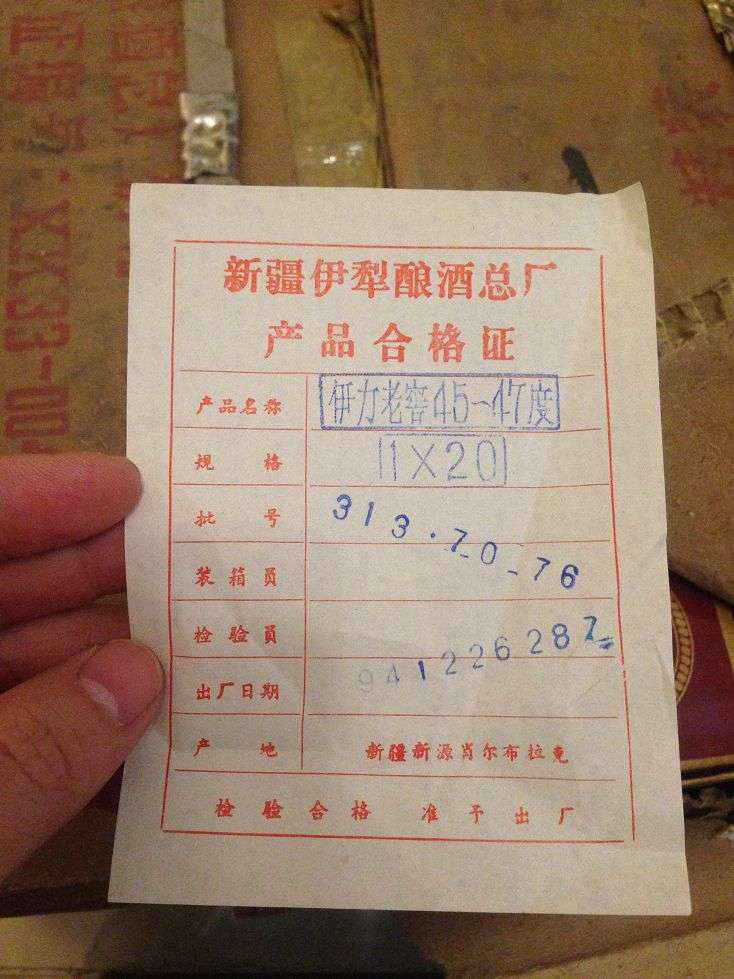 新疆伊犁酿酒总厂
产品合格证
产品名称 伊力老窖45-47度
规格 1×20
批号 313·70-76
装箱员
检验员 941226287
出厂日期
产地 新疆新源肖尔布拉克
检验合格 准予出厂